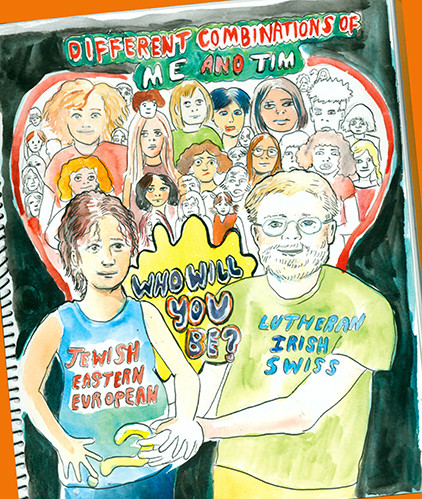 DIFFERENT COMBINATIONS OF
ME AND TIM
WHO WILL
YOU
BE?
JEWISH
EASTERN
EUROPEAN
LUTHERAN
IRISH
SWISS